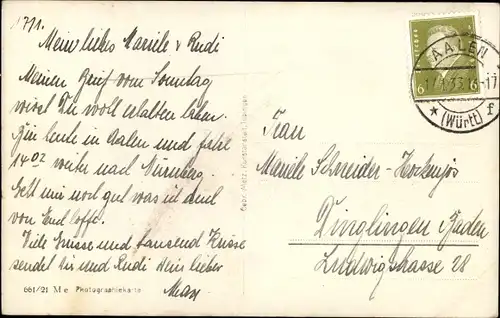 17/1.
Mein liebes Mariele & Rudi
Meinen Brief vom Sonntag
wirst Du wohl erhalten haben.
Bin heute in Aalen und fahre
14.02 weiter nach Nürnberg.
Geht mir noch gut was ich auch
von Euch hoffe.
Viele Grüsse und tausend Küsse
sendet Dir und Rudi Dein lieber
Max
661/21 Me Photographiekarte
Gebr. Metz, Kunstanstalt, Tübingen
DEUTSCHES REICH
6 6
AALEN
17.1.33.16-17
* (Württ) f
Frau
Mariele Schneider-Hockenjos
Dinglingen Baden
Ludwigstrasse 28